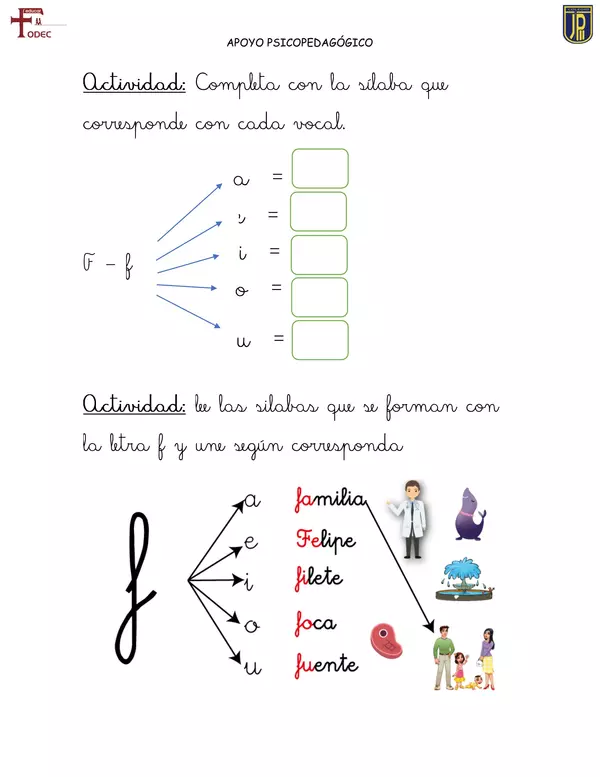 educar
F
ODEC
JPII
APOYO PSICOPEDAGÓGICO
Actividad: Completa con la sílaba que
corresponde con cada vocal.
a =
=
i =
F - f
o =
u =
Actividad: lee las silabas que se forman con
la letra f y une según corresponda
a familia
e Felipe
i filete
f
o foca
u fuente